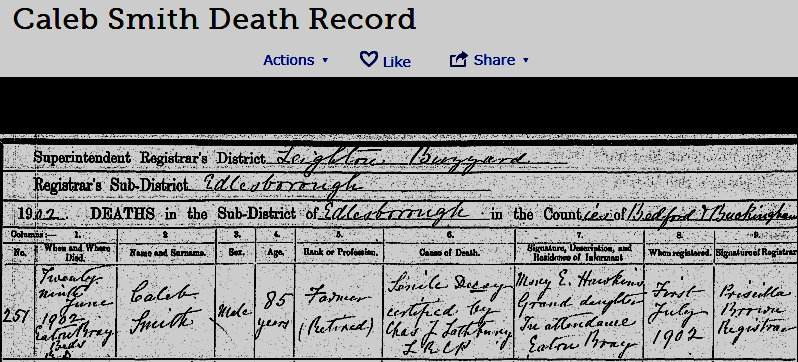 Caleb Smith Death Record
Actions ▾ Like Share ▾
Superintendent Registrar's District Leighton Buzzard
Registrar's Sub-District Edlesborough
1902 DEATHS in the Sub-District of Edlesborough in the Counties of Bedford & Buckingham
Columns:— 1. 2 3. 4. 5. 6. 7. 8. 9.
No. When and Where Died. Name and Surname. Sex. Age. Rank or Profession. Cause of Death. Signature, Description, and Residence of Informant When registered. Signature of Registrar
251
Twenty
ninth
June
1902
Eaton Bray
Beds
Caleb
Smith
Male
85
years
Farmer
(Retired)
Senile Decay
certified by
Chas
L R C P
E. Hawkins
Grand daughter
In attendance
Eaton Bray
First
July
1902
Priscilla
Brown
Registrar